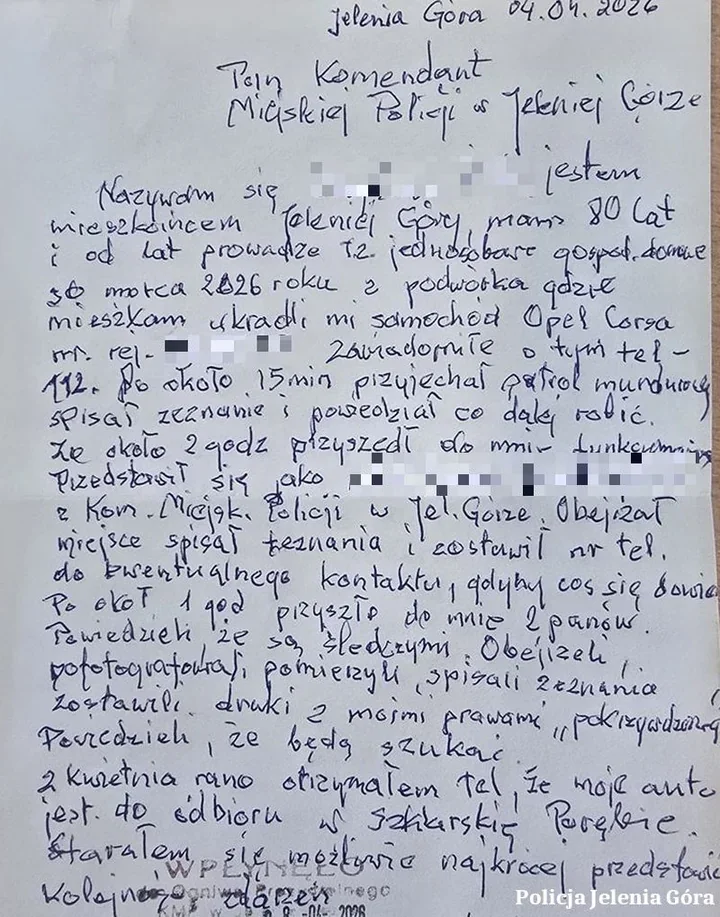 Jelenia Góra 04.04.2026
Pan Komendant
Miejskiej Policji w Jeleniej Górze
Nazywam się jestem
mieszkańcem Jeleniej Góry, mam 80 lat
i od lat prowadzę tz. jednosobowe gospod. domowe
30 marca 2026 roku z podwórka gdzie
mieszkam ukradli mi samochód Opel Corsa
nr. rej. - Zawiadomiłe o tym tel -
112. Po około 15 min przyjechał patrol mundurowy
spisał zeznanie i powiedział co dalej robić.
Ze około 2 godz przyszedł do mnie funkcjonariusz
Przedstawił się jako
z Kom. Miejsk. Policji w Jel. Górze. Obejżał
miejsce spisał zeznania i zostawił nr tel.
do ewentualnego kontaktu, gdyby coś się dowie
Po okoł 1 god przyszło do mnie 2 panów.
Powiedzieli że są śledczymi. Obejżeli,
pofotografowali, pomierzyli, spisali zeznania
zostawili druki z moimi prawami „pokrzywdzonego
Powiedzieli, że będą szukać.
2 kwietnia rano otrzymałem tel, że moje auto
jest do odbioru w Szklarskiej Porębie.
Starałem się możliwie najkrócej przedstawić
kolejność zdarzeń
WPŁYNĘŁO
-04- 2026
Policja Jelenia Góra